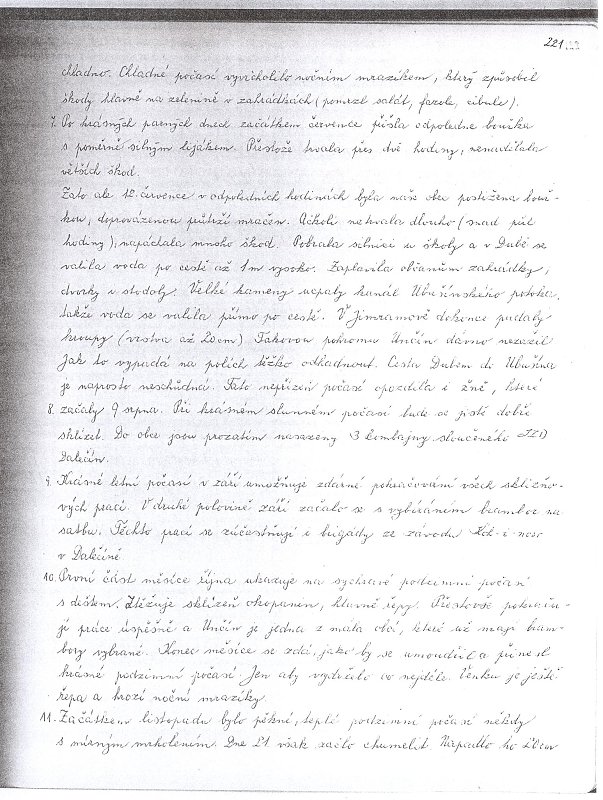 221
chladno. Chladné počasí vyvrcholilo nočním mrazíkem, který způsobil
škody hlavně na zelenině v zahrádkách (pomrzl salát, fazole, cibule).
7. Po krásných parných dnech začátkem července přišla odpoledne bouřka
s poměrně silným lijákem. Přestože trvala přes dvě hodiny, nenadělala
větších škod.
Zato ale 12. července v odpoledních hodinách byla naše obec postižena bouř-
kou, doprovázenou průtrží mračen. Ačkoli netrvala dlouho (snad půl
hodiny), napáchala mnoho škod. Pobrala silnici u školy a v Dubě se
valila voda po cestě až 1m vysoko. Zaplavila občanům zahrádky,
dvorky i stodoly. Velké kameny ucpaly kanál Ubušínského potoka,
takže voda se valila přímo po cestě. V Jimramově dokonce padaly
kroupy (vrstva až 20cm) Takovou pohromu Unčín dávno nezažil
Jak to vypadá na polích těžko odhadnout. Cesta Dubem do Ubušína
je naprosto neschůdná. Tato nepřízeň počasí opozdila i žně, které
8. začaly 9 srpna. Při krásném slunném počasí bude se jistě dobře
sklízet. Do obce jsou prozatím nasazeny 3 kombajny sloučeného JZD
Dalečín.
9. Krásné letní počasí v září umožňuje zdárné pokračování všech sklizňo-
vých prací. V druhé polovině září začalo se s vybíráním brambor na
satbu. Těchto prací se zúčastňují i brigády ze závodu
v Dalečíně.
10. První část měsíce října ukazuje na sychravé podzimní počasí
s deštěm. Ztěžuje sklizeň okopanin, hlavně řepy. Přestože pokraču-
jí práce úspěšně a Unčín je jedna z mála obcí, které už mají bram-
bory vybrané. Konec měsíce se zdá, jako by se umoudřil a přinesl
krásné podzimní počasí Jen aby vydrželo co nejdéle. Venku je ještě
řepa a hrozí noční mrazíky.
11. Začátkem listopadu bylo pěkné, teplé podzimní počasí někdy
s mírným mrholením. Dne 21 však začlo chumelit. Napadlo ho 20cm